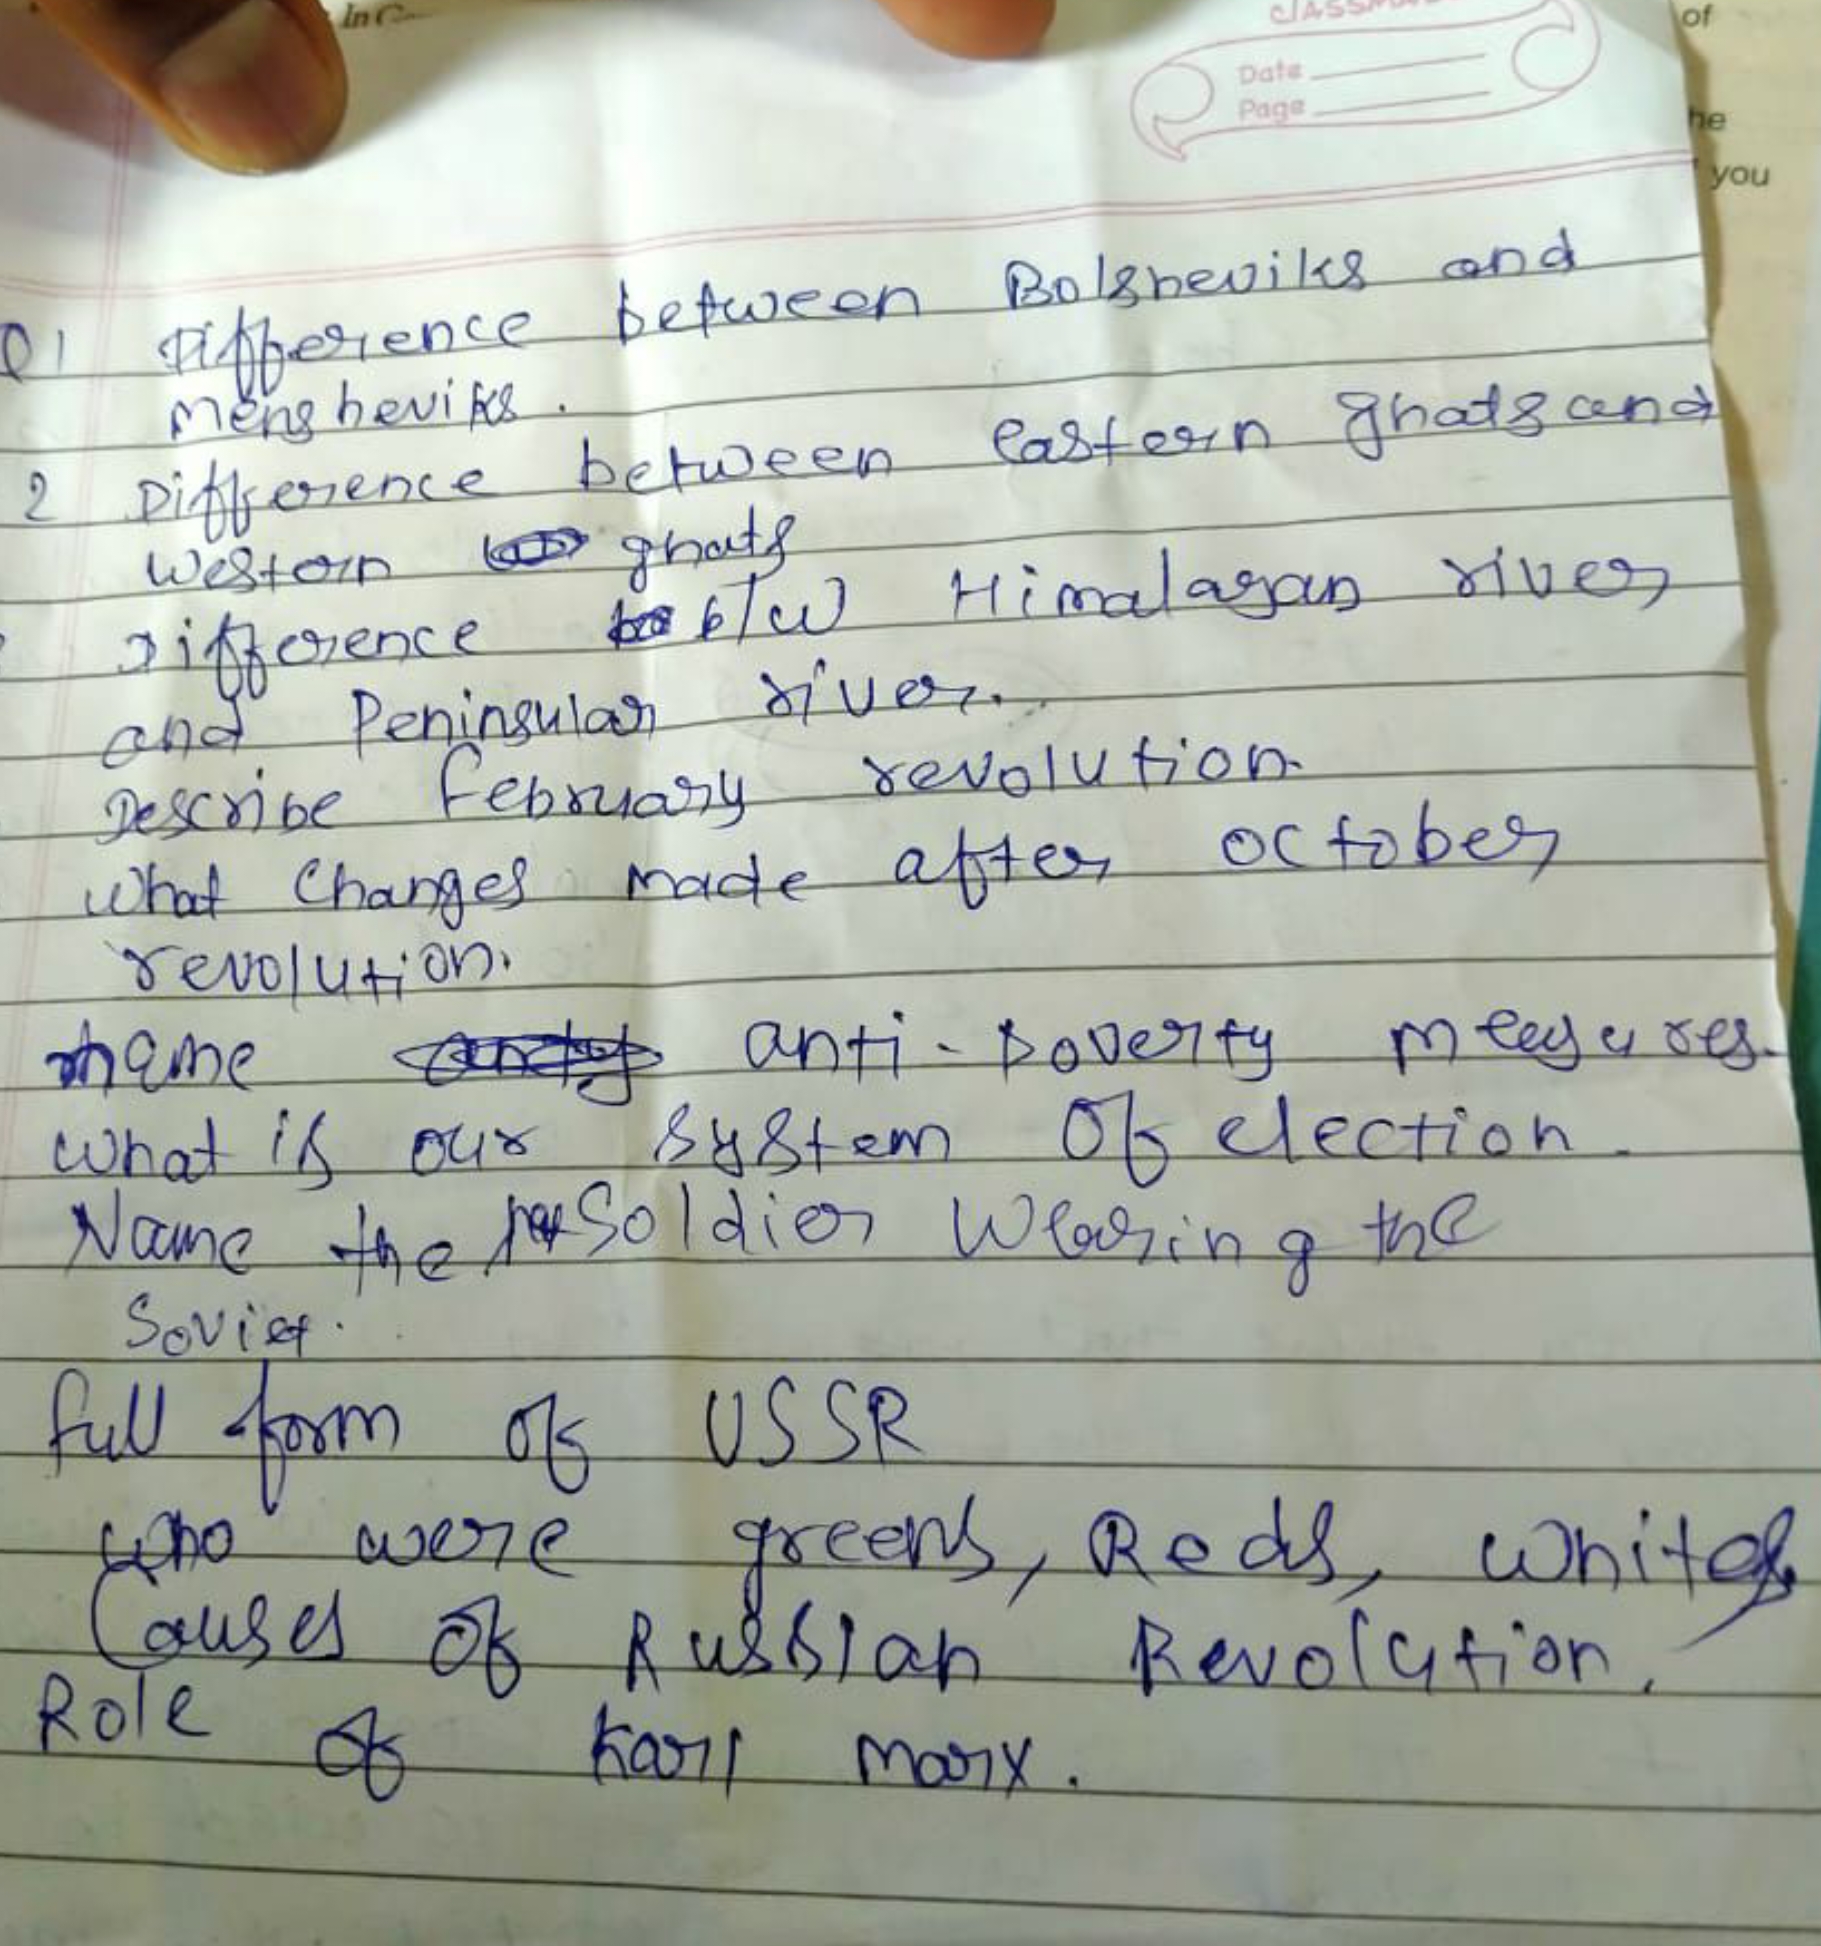 In C
of
classm
Date
Page
he
you
Q1 Difference between Bolsheviks and
Mensheviks.
2 Difference between eastern ghats and
Western ghats
Difference b/w Himalayan river
and Peninsular river.
Describe february revolution.
What changes made after october
revolution.
name anti-poverty measures.
What is our system of election.
Name the soldier wearing the
Soviet.
full form of USSR
who were greens, Reds, whites
Causes of Russian Revolution.
Role of Karl marx.